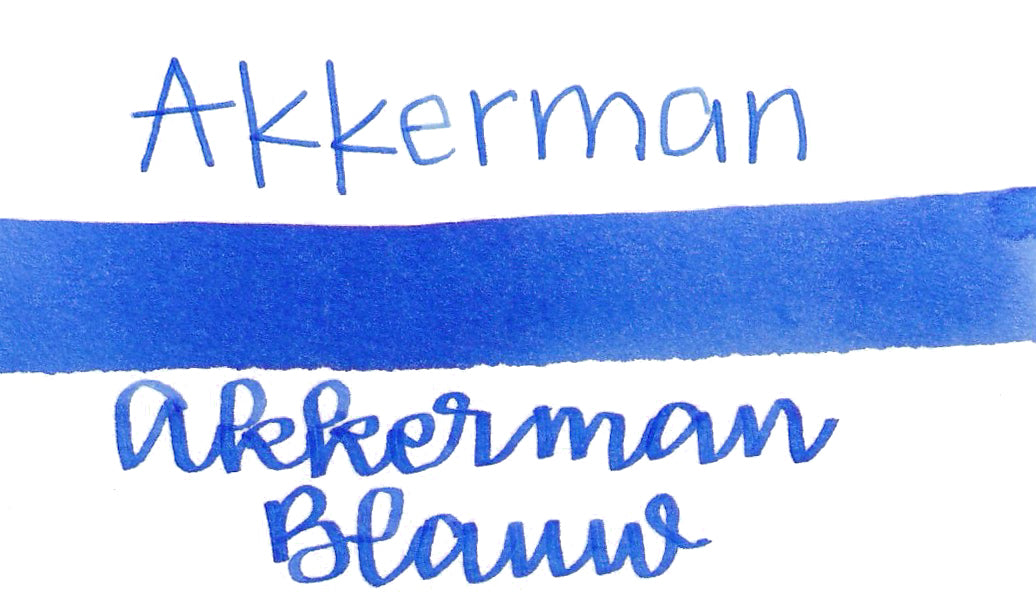 Akkerman
Akkerman
Blauw